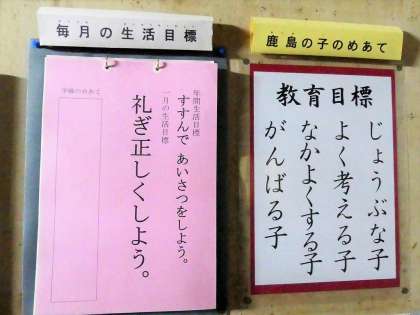 毎月の生活目標
年間生活目標
すすんで あいさつをしよう。
一月の生活目標
礼ぎ正しくしよう。
学級のめあて
鹿島の子のめあて
教育目標
じょうぶな子
よく考える子
なかよくする子
がんばる子